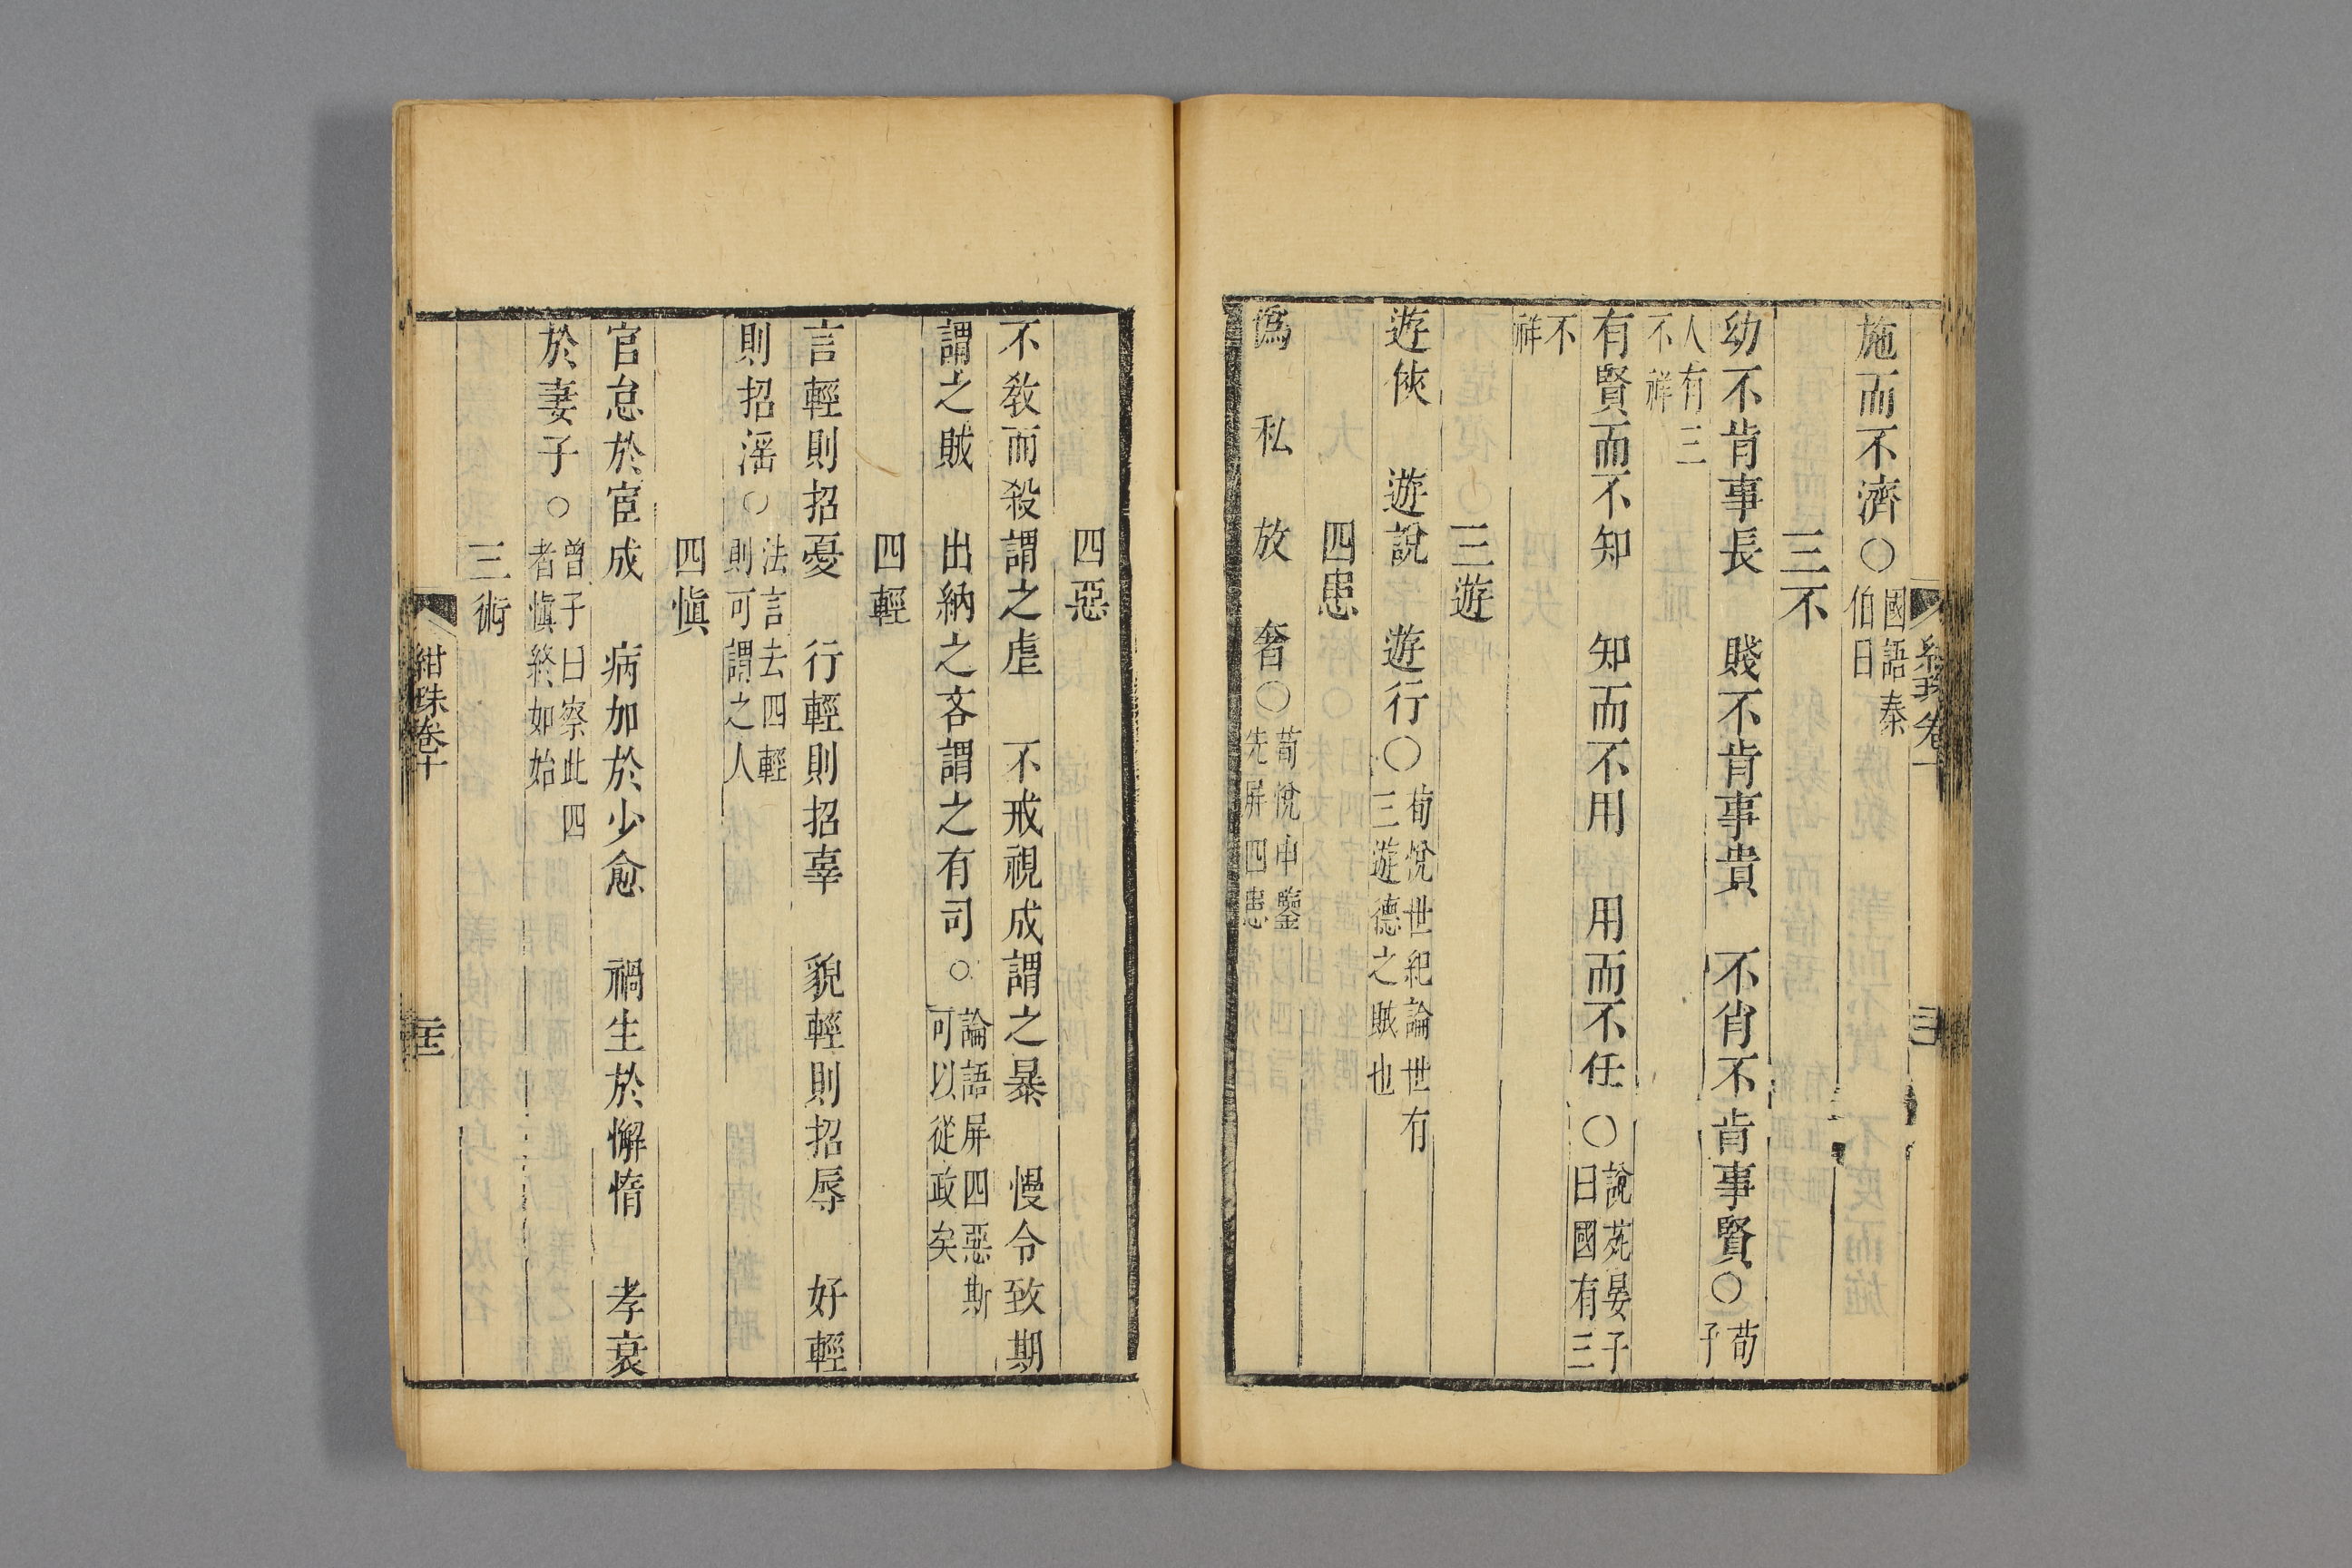 施而不濟○國語秦伯曰
三不
幼不肯事長　賤不肯事貴　不肖不肯事賢○荀子
人有三不祥
有賢而不知　知而不用　用而不任○說苑晏子曰國有三
不祥
三遊
遊俠　遊說　遊行○荀悅世紀論世有三遊德之賊也
四患
僞　私　放　奢○荀悅申鑒先屏四患
四惡
不敎而殺謂之虐　不戒視成謂之暴　慢令致期
謂之賊　出納之吝謂之有司○論語屏四惡斯可以從政矣
四輕
言輕則招憂　行輕則招辜　貌輕則招辱　好輕
則招滛○法言去四輕則可謂之人
四愼
官怠於宦成　病加於少愈　禍生於懈惰　孝衰
於妻子○曾子曰察此四者愼終如始
三術
紺珠卷十